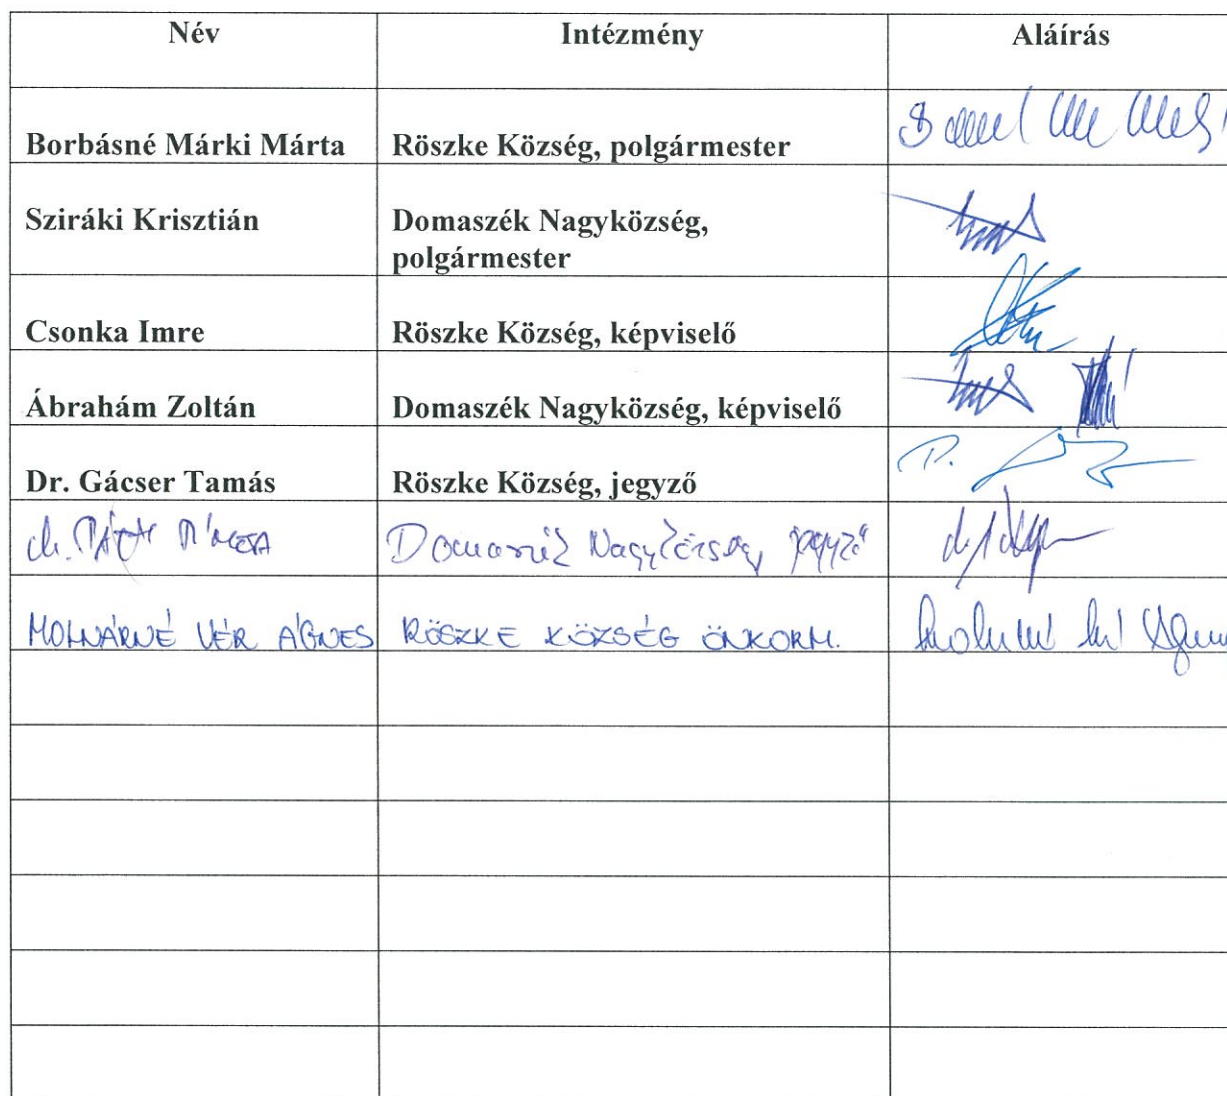 Név Intézmény Aláírás
Borbásné Márki Márta Röszke Község, polgármester
Sziráki Krisztián Domaszék Nagyközség,
polgármester
Csonka Imre Röszke Község, képviselő
Ábrahám Zoltán Domaszék Nagyközség, képviselő
Dr. Gácser Tamás Röszke Község, jegyző
dr. Domaszék Nagyközség, jegyző
MOLNÁRNÉ VÉR ÁGNES RÖSZKE KÖZSÉG ÖNKORM.